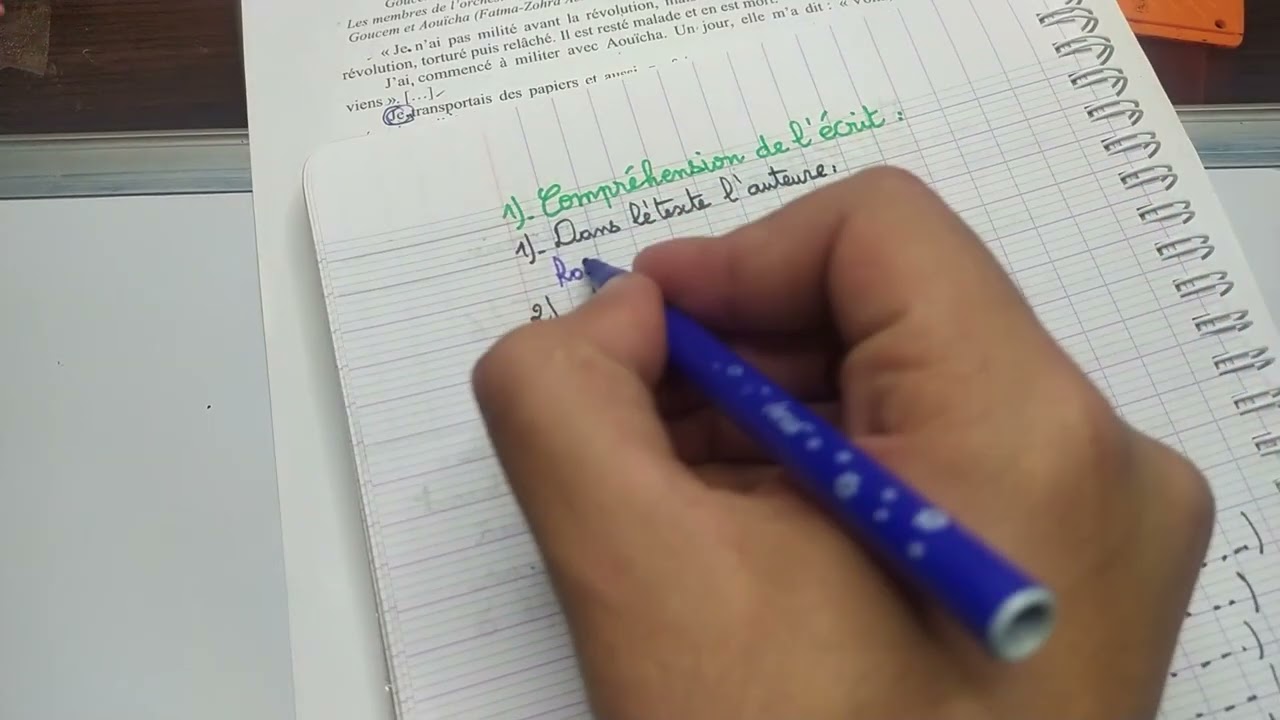 Les membres de l'orche
Goucem et Aouïcha (Fatma-Zohra
« Je n'ai pas milité avant la révolution,
révolution, torturé puis relâché. Il est resté malade et en est mort.
J'ai, commencé à militer avec Aouïcha. Un jour, elle m'a dit : «
viens ». [...]
Je transportais des papiers et aussi
1)- Compréhension de l'écrit :
1)- Dans le texte l'auteure.
Ro
2)